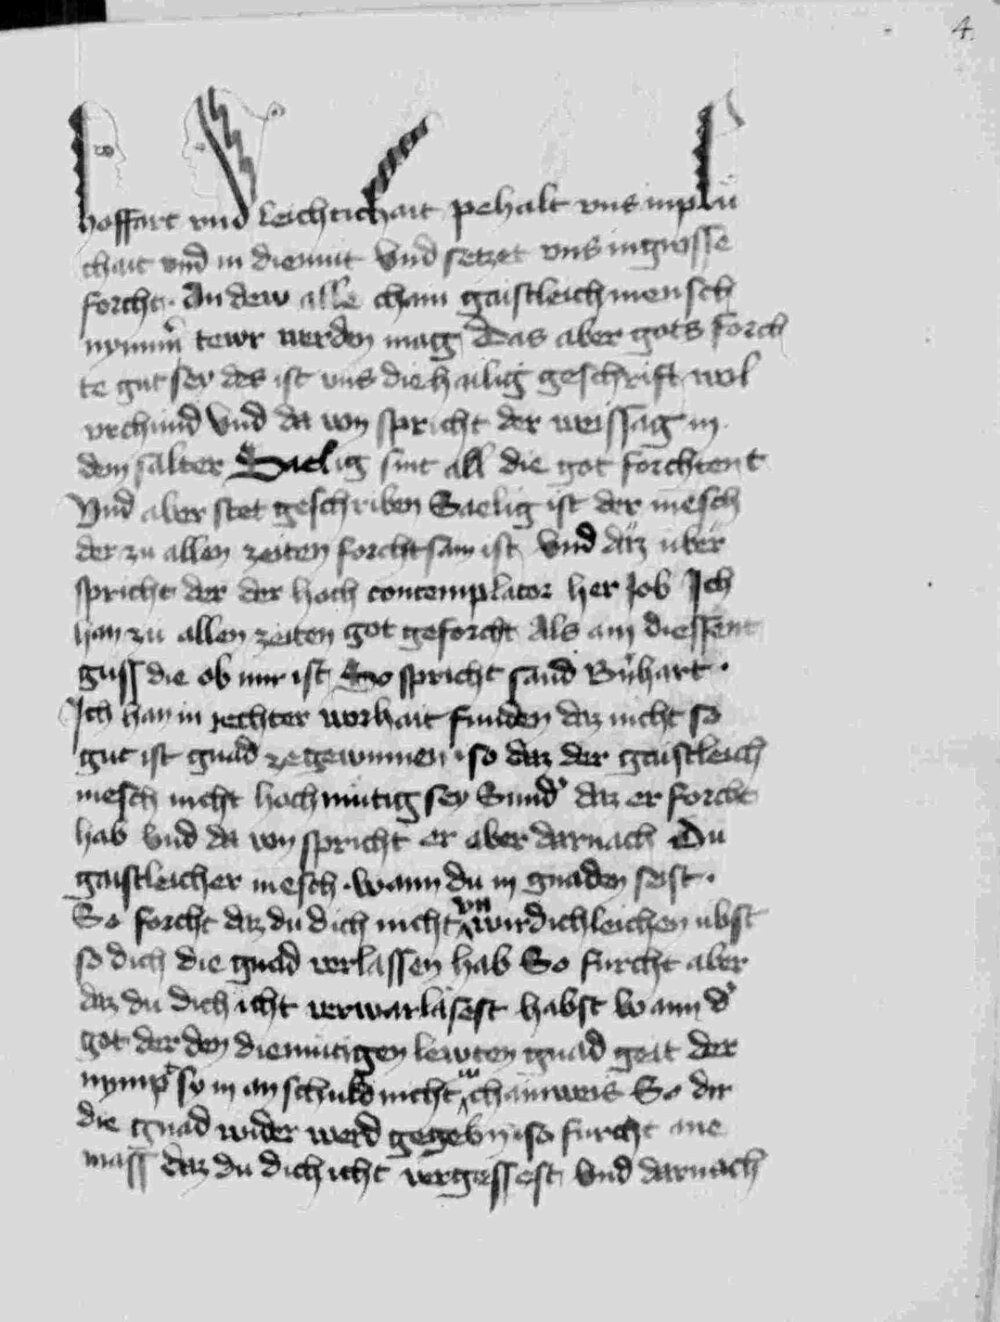 4
hoffart vnd leichtichait pehalt vns in plü
chait vnd in diemut Vnd setzet vns in grosse
forcht · An dew alle chain gaistleich mensch
nymm̄ tewr werden mag Das aber gots forch
te gut sey des ist vns die hailig geschrift wol
vrchund Vnd da von spricht der weissag in
dem salter Saelig sint all die got forchtent
Vnd aber stet geschriben Saelig ist der mēsch
der zu allen zeiten forchtsam ist Vnd dar über
spricht der der hoch contemplator her Job Ich
han zu allen zeiten got geforcht Als ain diessent
guss die ob mir ist So spricht sand Bn̄hart ·
Ich han in rechter worhait funden daz nicht so
gut ist gnad ze gewinnen · so daz der gaistleich
mesch nicht hochmütig sey Sund' daz er forcht
hab Vnd da von spricht er aber darnach Du
gaistleicher mesch · wann du in gnaden seist ·
So forcht daz du dich nicht vn wirdichleichen übst
so dich die gnad verlassen hab So furcht aber
daz du dich icht verwarlasest habst Wann d'
got der den diemütigen lewten gnad geit der
nympt sy in an schuld nicht in chainweis So dir
die gnad wider werd gegebn̄ · so furcht ane
mass daz du dich icht vergessest Vnd darnach